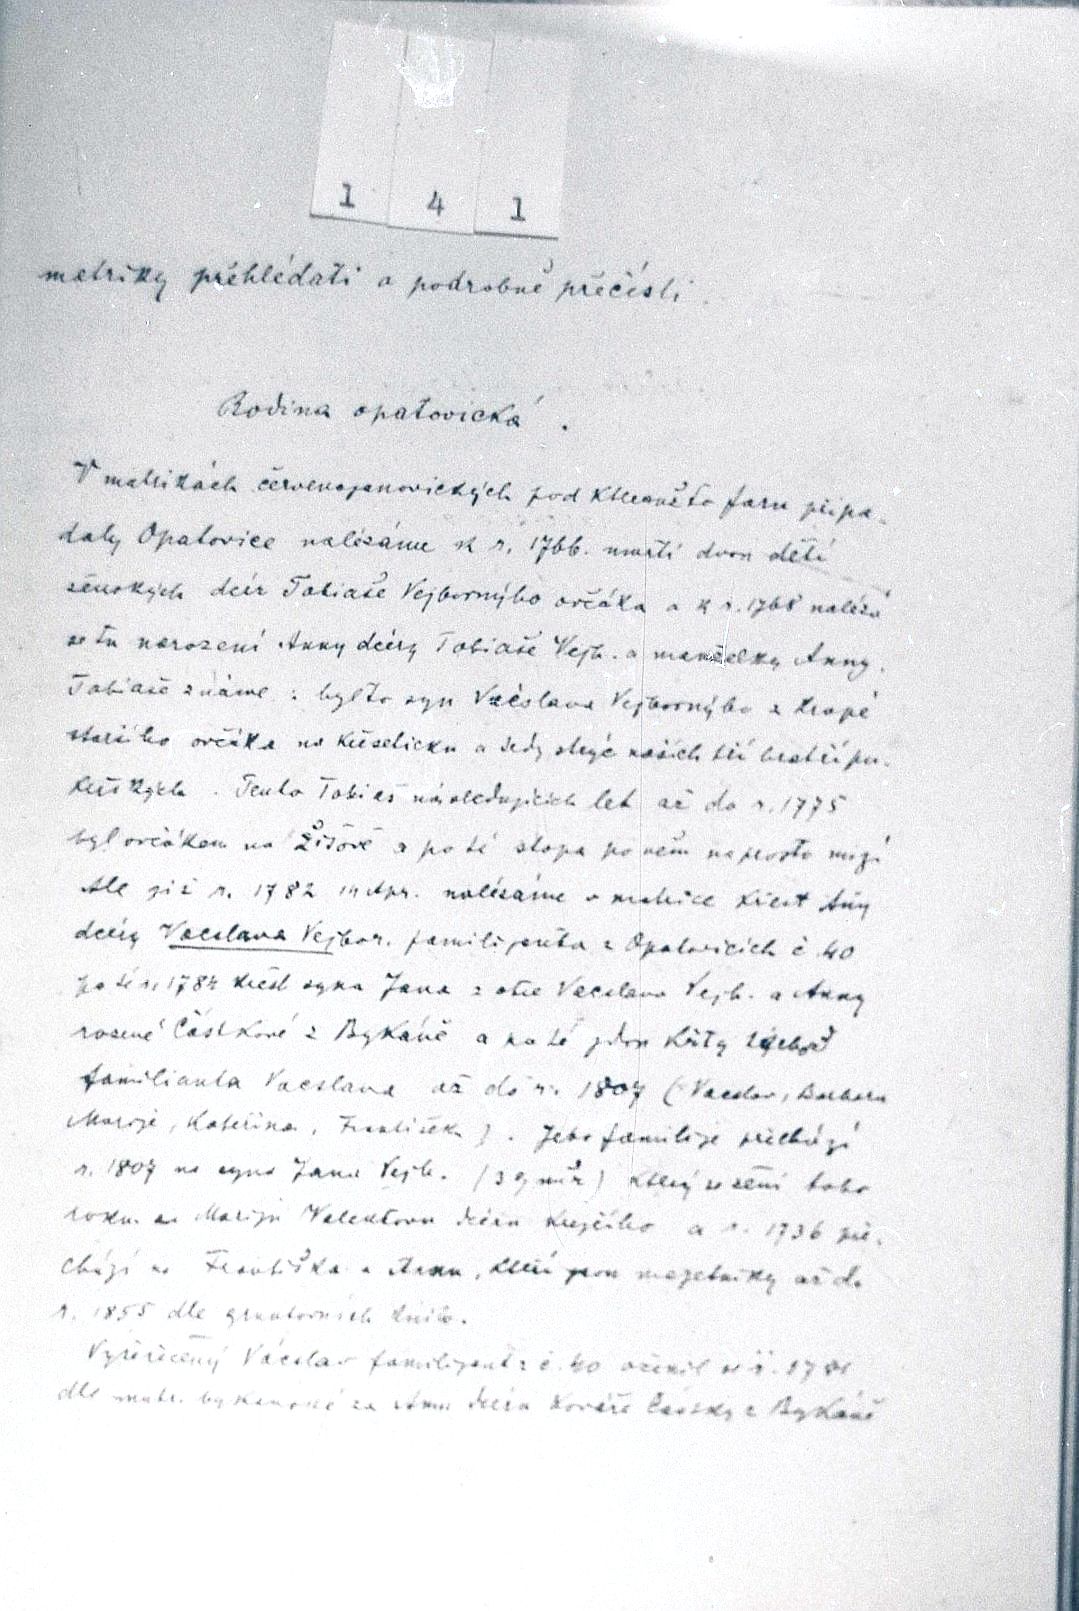 1 4 1
metriky přehlédati a podrobně přečísti.
Rodina opatovická.
V matrikách červenojanovických pod kteroužto faru připa-
daly Opatovice nalézáme k r. 1766. umrtí dvou dětí
ženských dcer Tobiaše Vejbornýho ovčáka a k r. 1768 nalézá
se tu narození Anny dcery Tobiaše Vejb. a manželky Anny.
Tobiaše známe: bylto syn Václava Vejbornýho z
staršího ovčáka na a tedy strýc našich tří bratří
. Tento Tobiaš následujících let až do r. 1775
byl ovčákem na Žišově a poté stopa po něm naprosto mizí
Ale již r. 1782 14 Apr. nalézáme v matrice křest Anny
dcery Vaeslava Vejbor. familijanta z Opatovicích č 40
poté r. 1784 křest syna Jana z otce Vaeslava Vejb. a Anny
rozené Částkové z Bykáně a poté jdou křty
familianta Vaeslava až do r. 1807 (Vaeslav, Barbara
Marije, Kateřina, František). Jeho familije přechází
r. 1807 na syna Jana Vejb. ( ) který se žení toho
roku za Mariji Valentovu dceru krejčího a r. 1736 pře-
chází na Františka a Annu, kteří jsou majetníky až do
r. 1855 dle gruntovních knih.
Vyřečený Václav familijant z č. 40 oženil se r. 1781
dle matr. bykáňské za Annu dceru kováře Částky z Bykáně